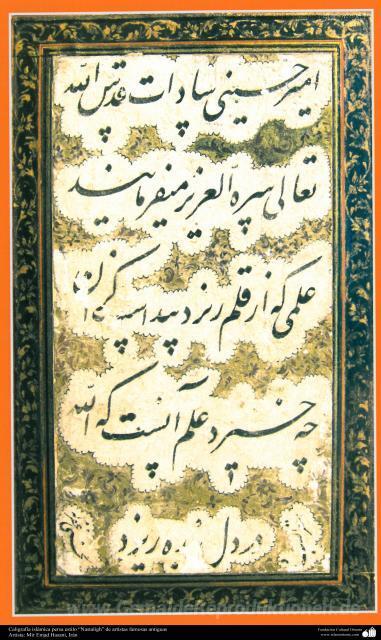 امیر حسینی سادات قدس الله
تعالی سره العزیز میفرمایند
علمی که از قلم ریزد پیداست کزان
چه خیزد علم آنست که الله
در دل ریزد
Caligrafía islámica persa estilo "Nastaligh" de artistas famosas antiguas
Artista: Mir Emad Hasani, Irán
Fundación Cultural Oriente